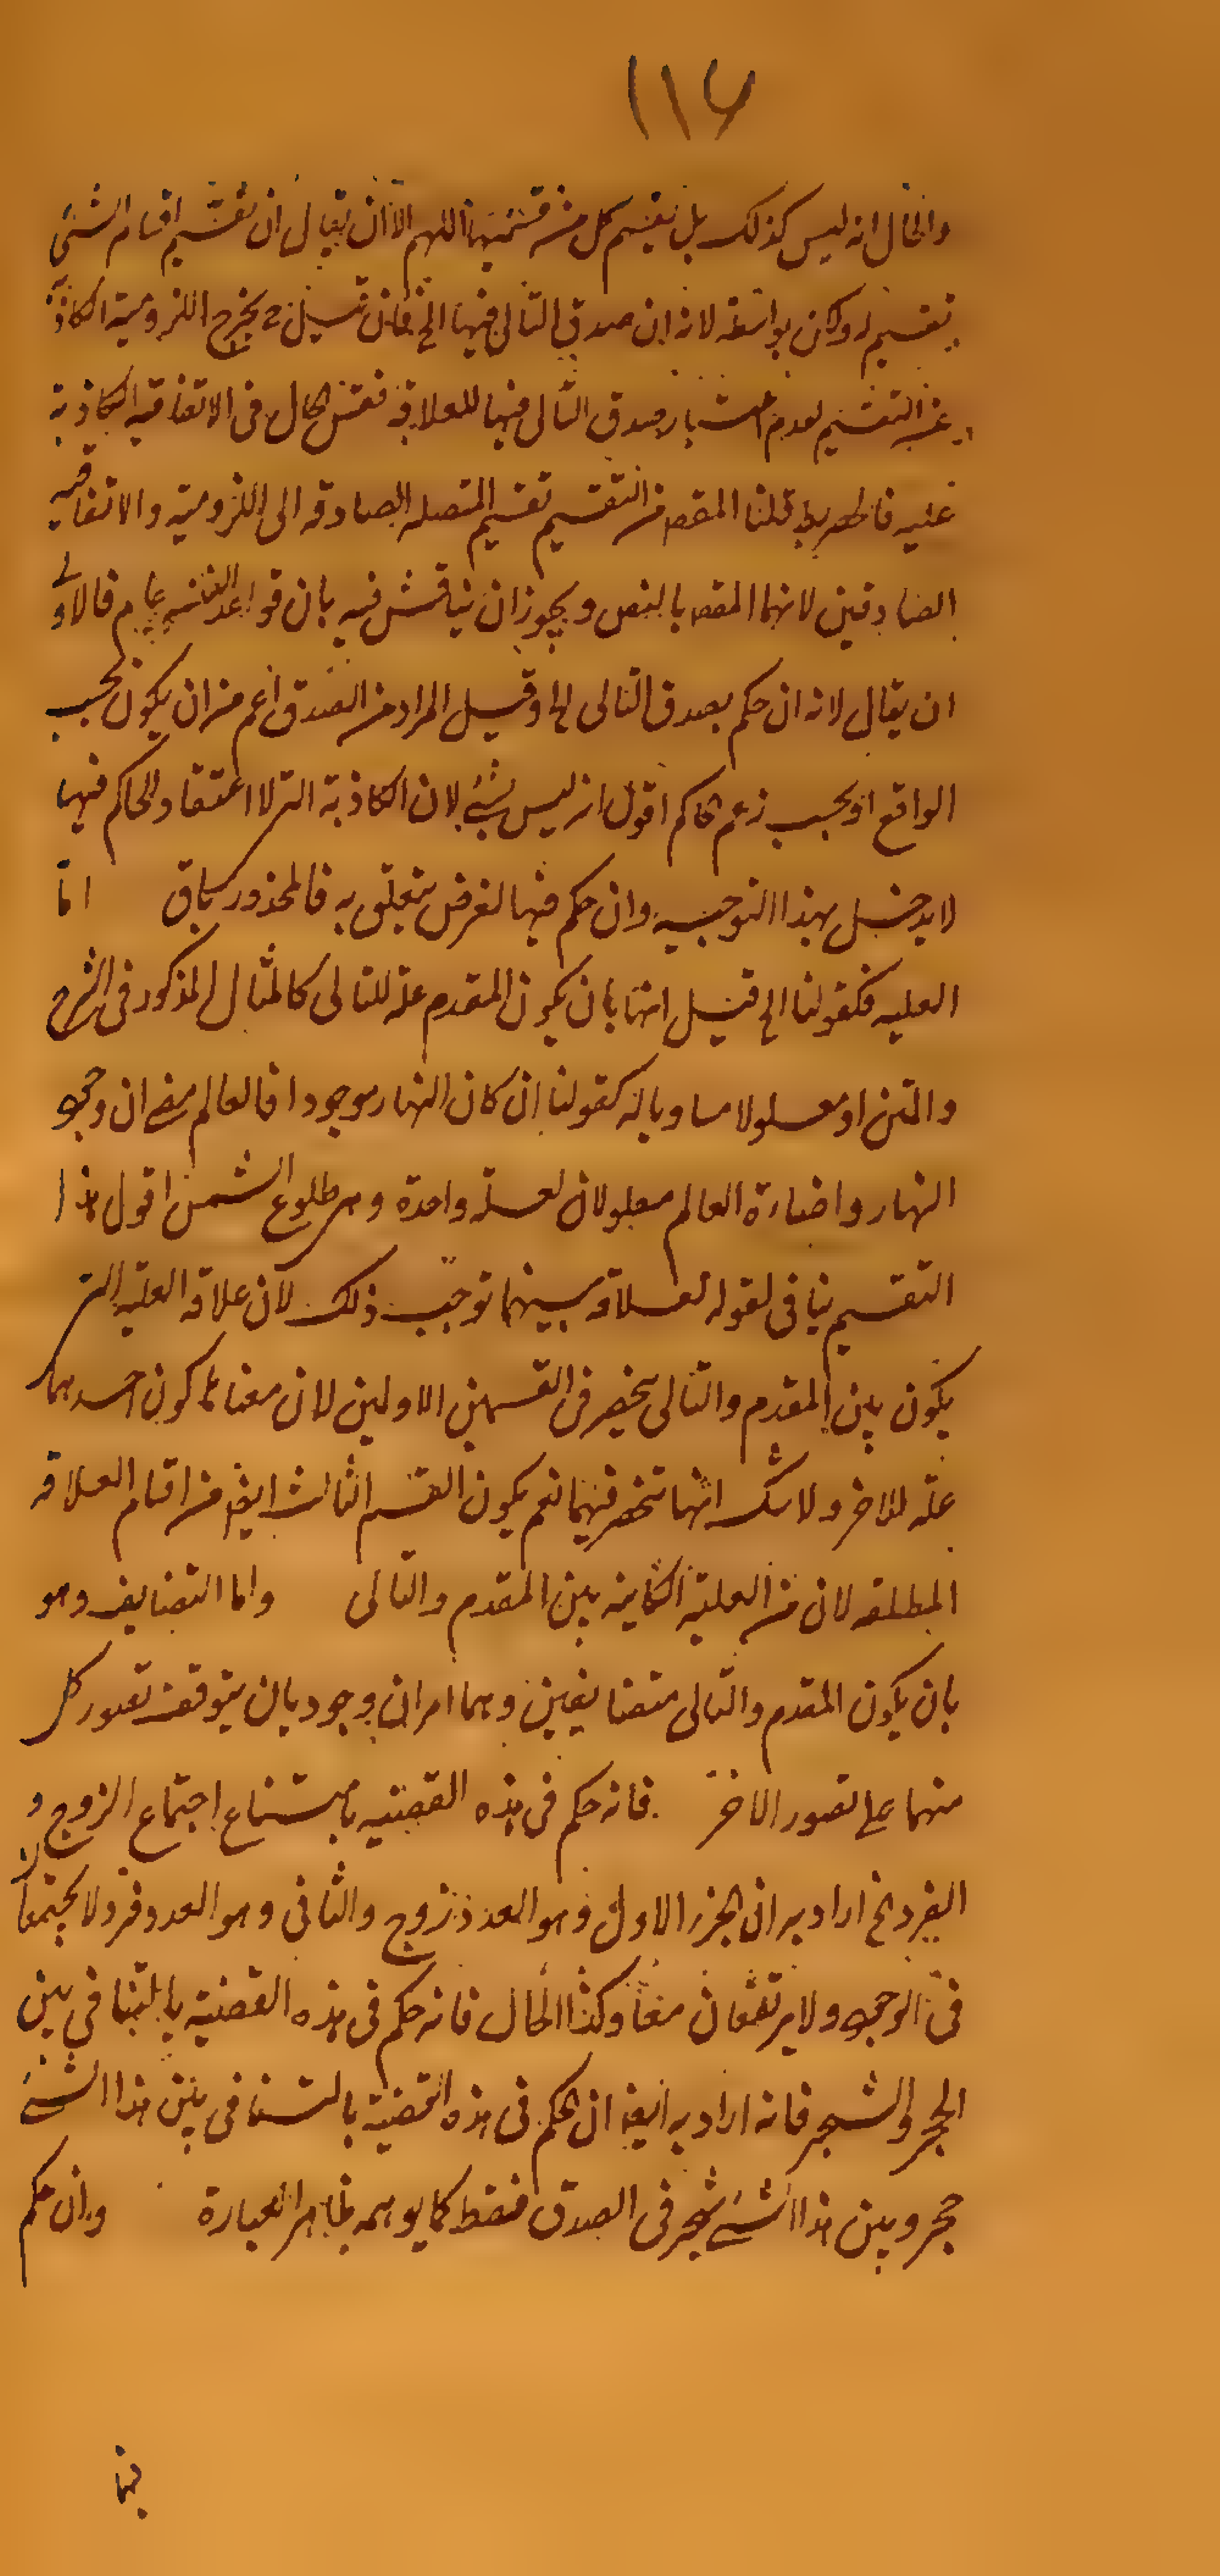 ١١٦
والحال انه ليس كذلك بل تقسيم كل من قسميها اللهم الا ان يقال ان تقسيم اقسام الشئ
تقسيم له ولكن بواسطة لانه ان صدق التالى فيها الخ فان قيل ح يخرج اللزومية الكاذبة
عن التقسيم لعدم اعتبار صدق التالى فيها للعلاقة فقس الحال فى الاتفاقيه الكاذبة
عليه فالحصر بط قلنا المقصم من التقسيم تقسيم المتصله الصادقه الى اللزومية والاتفاقيه
الصادقين لانهما المقصم بالنص ويجوز ان يناقش فيه بان قواعد الفن عام فالاولى
ان يقال لانه ان حكم بصدق التالى الخ او قيل المراد من الصدق اعم من ان يكون بحسب
الواقع او بحسب زعم الحاكم اقول انه ليس بشئ لان الكاذبة التى لا اعتقاد الحاكم فيها
لا يدخل بهذا التوجيه وان حكم فيها لغرض يتعلق به فالمحذور باق اما
العليه فكقولنا الخ قيل انها بان يكون المقدم علة للتالى كالمثال المذكور فى الشرح
والمتن او معلولا مساويا له كقولنا ان كان النهار موجودا فالعالم مضئ ان وجود
النهار واضاءة العالم معلولان لعلة واحدة وهى طلوع الشمس اقول هذا
التقسيم ينافى لقوله لعلاقه بينهما توجب ذلك لان علاقه العليه التى
يكون بين المقدم والتالى ينحصر فى القسمين الاولين لان معناها كون احدهما
علة للاخر ولا شك انها تنحصر فيهما نعم يكون القسم الثالث ايضا من اقسام العلاقه
المطلقه لان من العليه الكاينه بين المقدم والتالى واما التضايف وهو
بان يكون المقدم والتالى متضايفين وهما امران وجوديان يتوقف تصور كل
منهما على تصور الاخر فانه حكم فى هذه القضيه بامتناع اجتماع الزوج و
الفرد الخ اراد به ان الجزء الاول وهو العدد زوج والثانى وهو العدد فرد لا يجتمعان
فى الوجود ولا يرتفعان معا وكذا الحال فانه حكم فى هذه القضية بالتنافى بين
الحجر والشجر فانه اراد به ايضا ان الحكم فى هذه القضية بالتنافى بين هذا الشئ
حجر وبين هذا الشئ شجر فى الصدق فقط كما يوهمه ظاهر العبارة وان حكم
فيها